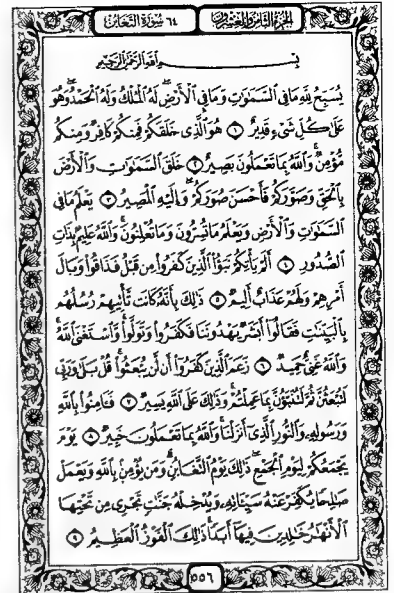 الجزء الثامن والعشرون ٦٤ سورة التغابن
بِسْمِ اللَّهِ الرَّحْمَٰنِ الرَّحِيمِ
يُسَبِّحُ لِلَّهِ مَا فِي السَّمَٰوَٰتِ وَمَا فِي الْأَرْضِ ۖ لَهُ الْمُلْكُ وَلَهُ الْحَمْدُ ۖ وَهُوَ
عَلَىٰ كُلِّ شَيْءٍ قَدِيرٌ ١ هُوَ الَّذِي خَلَقَكُمْ فَمِنكُمْ كَافِرٌ وَمِنكُم
مُّؤْمِنٌ ۚ وَاللَّهُ بِمَا تَعْمَلُونَ بَصِيرٌ ٢ خَلَقَ السَّمَٰوَٰتِ وَالْأَرْضَ
بِالْحَقِّ وَصَوَّرَكُمْ فَأَحْسَنَ صُوَرَكُمْ ۖ وَإِلَيْهِ الْمَصِيرُ ٣ يَعْلَمُ مَا فِي
السَّمَٰوَٰتِ وَالْأَرْضِ وَيَعْلَمُ مَا تُسِرُّونَ وَمَا تُعْلِنُونَ ۚ وَاللَّهُ عَلِيمٌ بِذَاتِ
الصُّدُورِ ٤ أَلَمْ يَأْتِكُمْ نَبَؤُا۟ الَّذِينَ كَفَرُوا مِن قَبْلُ فَذَاقُوا وَبَالَ
أَمْرِهِمْ وَلَهُمْ عَذَابٌ أَلِيمٌ ٥ ذَٰلِكَ بِأَنَّهُ كَانَت تَّأْتِيهِمْ رُسُلُهُم
بِالْبَيِّنَٰتِ فَقَالُوا أَبَشَرٌ يَهْدُونَنَا فَكَفَرُوا وَتَوَلَّوا ۚ وَّاسْتَغْنَى اللَّهُ ۚ
وَاللَّهُ غَنِيٌّ حَمِيدٌ ٦ زَعَمَ الَّذِينَ كَفَرُوا أَن لَّن يُبْعَثُوا ۚ قُلْ بَلَىٰ وَرَبِّي
لَتُبْعَثُنَّ ثُمَّ لَتُنَبَّؤُنَّ بِمَا عَمِلْتُمْ ۚ وَذَٰلِكَ عَلَى اللَّهِ يَسِيرٌ ٧ فَـَٔامِنُوا بِاللَّهِ
وَرَسُولِهِ وَالنُّورِ الَّذِي أَنزَلْنَا ۚ وَاللَّهُ بِمَا تَعْمَلُونَ خَبِيرٌ ٨ يَوْمَ
يَجْمَعُكُمْ لِيَوْمِ الْجَمْعِ ۖ ذَٰلِكَ يَوْمُ التَّغَابُنِ ۗ وَمَن يُؤْمِن بِاللَّهِ وَيَعْمَلْ
صَٰلِحًا يُكَفِّرْ عَنْهُ سَيِّـَٔاتِهِ وَيُدْخِلْهُ جَنَّٰتٍ تَجْرِي مِن تَحْتِهَا
الْأَنْهَٰرُ خَٰلِدِينَ فِيهَا أَبَدًا ۚ ذَٰلِكَ الْفَوْزُ الْعَظِيمُ ٩
٥٥٦